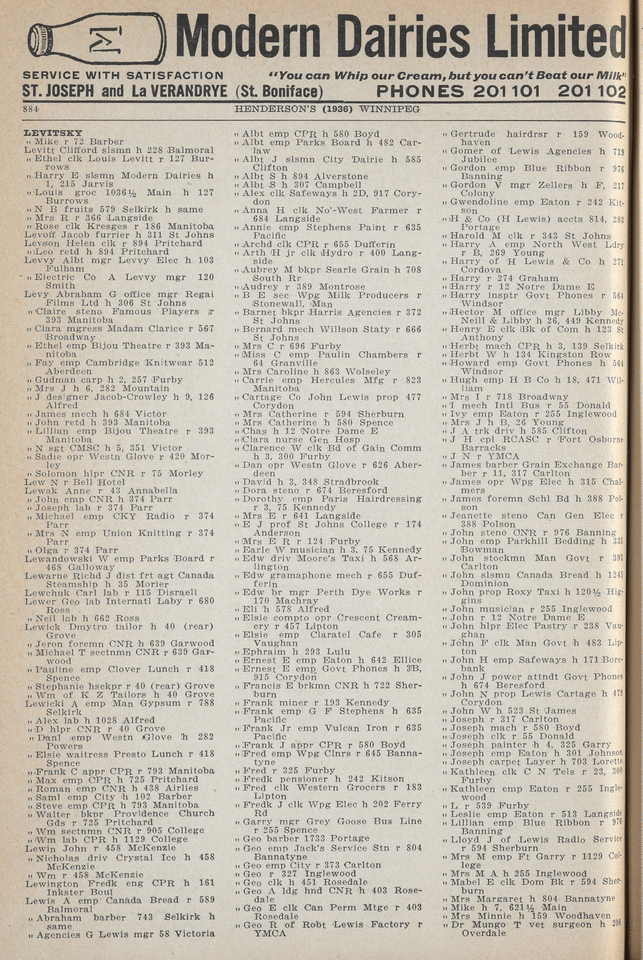 Modern Dairies Limited
SERVICE WITH SATISFACTION "You can Whip our Cream, but you can't Beat our Milk"
ST. JOSEPH and La VERANDRYE (St. Boniface) PHONES 201 101 201 102
884 HENDERSON'S (1936) WINNIPEG
LEVITSKY
" Mike r 72 Barber
Levitt Clifford slsmn h 228 Balmoral
" Ethel clk Louis Levitt r 127 Bur-
rows
" Harry E slsmn Modern Dairies h
1, 215 Jarvis
" Louis groc 1036½ Main h 127
Burrows
" N B fruits 579 Selkirk h same
" Mrs R r 366 Langside
" Rose clk Kresges r 186 Manitoba
Levoff Jacob furrier h 311 St Johns
Levson Helen clk r 894 Pritchard
" Leo retd h 894 Pritchard
Levvy Albt mgr Levvy Elec h 103
Fulham
" Electric Co A Levvy mgr 120
Smith
Levy Abraham G office mgr Regal
Films Ltd h 306 St Johns
" Claire steno Famous Players r
393 Manitoba
" Clara mgress Madam Clarice r 567
Broadway
" Ethel emp Bijou Theatre r 393 Ma-
nitoba
" Fay emp Cambridge Knitwear 512
Aberdeen
" Gudman carp h 2, 257 Furby
" Mrs J h 6, 282 Mountain
" J designer Jacob-Crowley h 9, 126
Alfred
" James mech h 684 Victor
" John retd h 393 Manitoba
" Lillian emp Bijou Theatre r 393
Manitoba
" N sgt CMSC h 5, 351 Victor
" Sadie opr Westn Glove r 420 Mor-
ley
" Solomon hlpr CNR r 75 Morley
Lew N r Bell Hotel
Lewak Anne r 43 Annabella
" John emp CNR h 374 Parr
" Joseph lab r 374 Parr
" Michael emp CKY Radio r 374
Parr
" Mrs N emp Union Knitting r 374
Parr
" Olga r 374 Parr
Lewandowski W emp Parks Board r
468 Galloway
Lewarne Richd J dist frt agt Canada
Steamship h 35 Morier
Lewchuk Carl lab r 115 Disraeli
Lewer Geo lab Internatl Laby r 680
Ross
" Neil lab h 662 Ross
Lewick Dmytro tailor h 40 (rear)
Grove
" Jeron foremn CNR h 639 Garwood
" Michael T sectnmn CNR r 639 Gar-
wood
" Pauline emp Clover Lunch r 418
Spence
" Stephanie hsekpr r 40 (rear) Grove
" Wm of K Z Tailors h 40 Grove
Lewicki A emp Man Gypsum r 788
Selkirk
" Alex lab h 1028 Alfred
" D hlpr CNR r 40 Grove
" Danl emp Westn Glove h 282
Powers
" Elsie waitress Presto Lunch r 418
Spence
" Frank C appr CPR r 793 Manitoba
" Max emp CPR h 725 Pritchard
" Roman emp CNR h 438 Airlies
" Saml emp City h 102 Barber
" Steve emp CPR h 793 Manitoba
" Walter bkpr Providence Church
Gds r 725 Pritchard
" Wm sectnmn CNR r 905 College
" Wm lab CPR h 1129 College
Lewin John r 458 McKenzie
" Nicholas driv Crystal Ice h 458
McKenzie
" Wm r 458 McKenzie
Lewington Fredk eng CPR h 161
Inkster Boul
Lewis A emp Canada Bread r 589
Balmoral
" Abraham barber 743 Selkirk h
same
" Agencies G Lewis mgr 58 Victoria
" Albt emp CPR h 580 Boyd
" Albt emp Parks Board h 482 Car-
law
" Albt J slsmn City Dairie h 585
Clifton
" Albt S h 894 Alverstone
" Albt S h 307 Campbell
" Alex clk Safeways h 2D, 917 Cory-
don
" Anna H clk No'-West Farmer r
684 Langside
" Annie emp Stephens Paint r 635
Pacific
" Archd clk CPR r 655 Dufferin
" Arth H jr clk Hydro r 400 Lang-
side
" Aubrey M bkpr Searle Grain h 708
South Rr
" Audrey r 389 Montrose
" B E sec Wpg Milk Producers r
Stonewall, Man
" Barnet bkpr Harris Agencies r 372
St Johns
" Bernard mech Willson Staty r 666
St Johns
" Mrs C r 696 Furby
" Miss C emp Paulin Chambers r
64 Granville
" Mrs Caroline h 863 Wolseley
" Carrie emp Hercules Mfg r 823
Manitoba
" Cartage Co John Lewis prop 477
Corydon
" Mrs Catherine r 594 Sherburn
" Mrs Catherine h 580 Spence
" Chas h 12 Notre Dame E
" Clara nurse Gen Hosp
" Clarence W clk Bd of Gain Comm
h 3, 300 Furby
" Dan opr Westn Glove r 626 Aber-
deen
" David h 3, 348 Stradbrook
" Dora steno r 674 Beresford
" Dorothy emp Paris Hairdressing
r 3, 75 Kennedy
" Mrs E r 641 Langside
" E J prof St Johns College r 174
Anderson
" Mrs E R r 124 Furby
" Earle W musician h 3, 75 Kennedy
" Edw driv Moore's Taxi h 568 Ar-
lington
" Edw gramaphone mech r 655 Duf-
ferin
" Edw br mgr Perth Dye Works r
170 Machray
" Eli h 578 Alfred
" Elsie compto opr Crescent Cream-
ery r 457 Lipton
" Elsie emp Claratel Cafe r 305
Vaughan
" Ephraim h 293 Lulu
" Ernest E emp Eaton h 642 Ellice
" Ernest E emp Govt Phones h 3B,
915 Corydon
" Francis E brkmn CNR h 722 Sher-
burn
" Frank miner r 193 Kennedy
" Frank emp G F Stephens h 635
Pacific
" Frank Jr emp Vulcan Iron r 635
Pacific
" Frank J appr CPR r 580 Boyd
" Fred emp Wpg Clnrs r 645 Banna-
tyne
" Fred r 325 Furby
" Fredk pensioner h 242 Kitson
" Fred clk Western Grocers r 183
Lipton
" Fredk J clk Wpg Elec h 202 Ferry
Rd
" Garry mgr Grey Goose Bus Line
r 255 Spence
" Geo barber 1733 Portage
" Geo emp Jack's Service Stn r 804
Bannatyne
" Geo emp City r 373 Carlton
" Geo r 327 Inglewood
" Geo clk h 451 Rosedale
" Geo A ldg hnd CNR h 403 Rose-
dale
" Geo E clk Can Perm Mtge r 403
Rosedale
" Geo R of Robt Lewis Factory r
YMCA
" Gertrude hairdrsr r 159 Wood-
haven
" Gomer of Lewis Agencies h 719
Jubilee
" Gordon emp Blue Ribbon r 976
Banning
" Gordon V mgr Zellers h F, 217
Colony
" Gwendoline emp Eaton r 242 Kit-
son
" H & Co (H Lewis) accts 814, 283
Portage
" Harold M clk r 343 St Johns
" Harry A emp North West Ldry
r B, 269 Young
" Harry of H Lewis & Co h 271
Cordova
" Harry r 274 Graham
" Harry r 12 Notre Dame E
" Harry insptr Govt Phones r 564
Windsor
" Hector M office mgr Libby Mc-
Neill & Libby h 26, 449 Kennedy
" Henry E clk Bk of Com h 123 St
Anthony
" Herbt mach CPR h 3, 139 Selkirk
" Herbt W h 134 Kingston Row
" Howard emp Govt Phones h 564
Windsor
" Hugh emp H B Co h 18, 471 Wil-
liam
" Mrs I r 718 Broadway
" I mech Intl Bus r 55 Donald
" Ivy emp Eaton r 255 Inglewood
" Mrs J h B, 26 Young
" J A trk driv h 585 Clifton
" J H cpl RCASC r Fort Osborne
Barracks
" J N r YMCA
" James barber Grain Exchange Bar-
ber r 11, 317 Carlton
" James opr Wpg Elec h 315 Chal-
mers
" James foremn Schl Bd h 388 Pol-
son
" Jeanette steno Can Gen Elec r
388 Polson
" John steno CNR r 976 Banning
" John emp Parkhill Bedding h 335
Bowman
" John stockmn Man Govt r 395
Carlton
" John slsmn Canada Bread h 1245
Dominion
" John prop Roxy Taxi h 120½ Hig-
gins
" John musician r 255 Inglewood
" John r 12 Notre Dame E
" John hlpr Elec Pastry r 238 Vau-
ghan
" John F clk Man Govt h 483 Lip-
ton
" John H emp Safeways h 171 Bore-
bank
" John J power attndt Govt Phones
h 674 Beresford
" John N prop Lewis Cartage h 479
Corydon
" John W h 523 St James
" Joseph r 317 Carlton
" Joseph mach r 580 Boyd
" Joseph clk r 55 Donald
" Joseph painter h 4, 325 Garry
" Joseph emp Eaton h 301 Johnson
" Joseph carpet Layer h 703 Loretto
" Kathleen clk C N Tels r 23, 300
Furby
" Kathleen emp Eaton r 255 Ingle-
wood
" L r 539 Furby
" Leslie emp Eaton r 513 Langside
" Lillian emp Blue Ribbon r 976
Banning
" Lloyd J of Lewis Radio Service
r 594 Sherburn
" Mrs M emp Ft Garry r 1129 Col-
lege
" Mrs M A h 255 Inglewood
" Mabel E clk Dom Bk r 594 Sher-
burn
" Mrs Margaret h 804 Bannatyne
" Mike h 7, 621½ Main
" Mrs Minnie h 159 Woodhaven
" Dr Mungo T vet surgeon h
Overdale